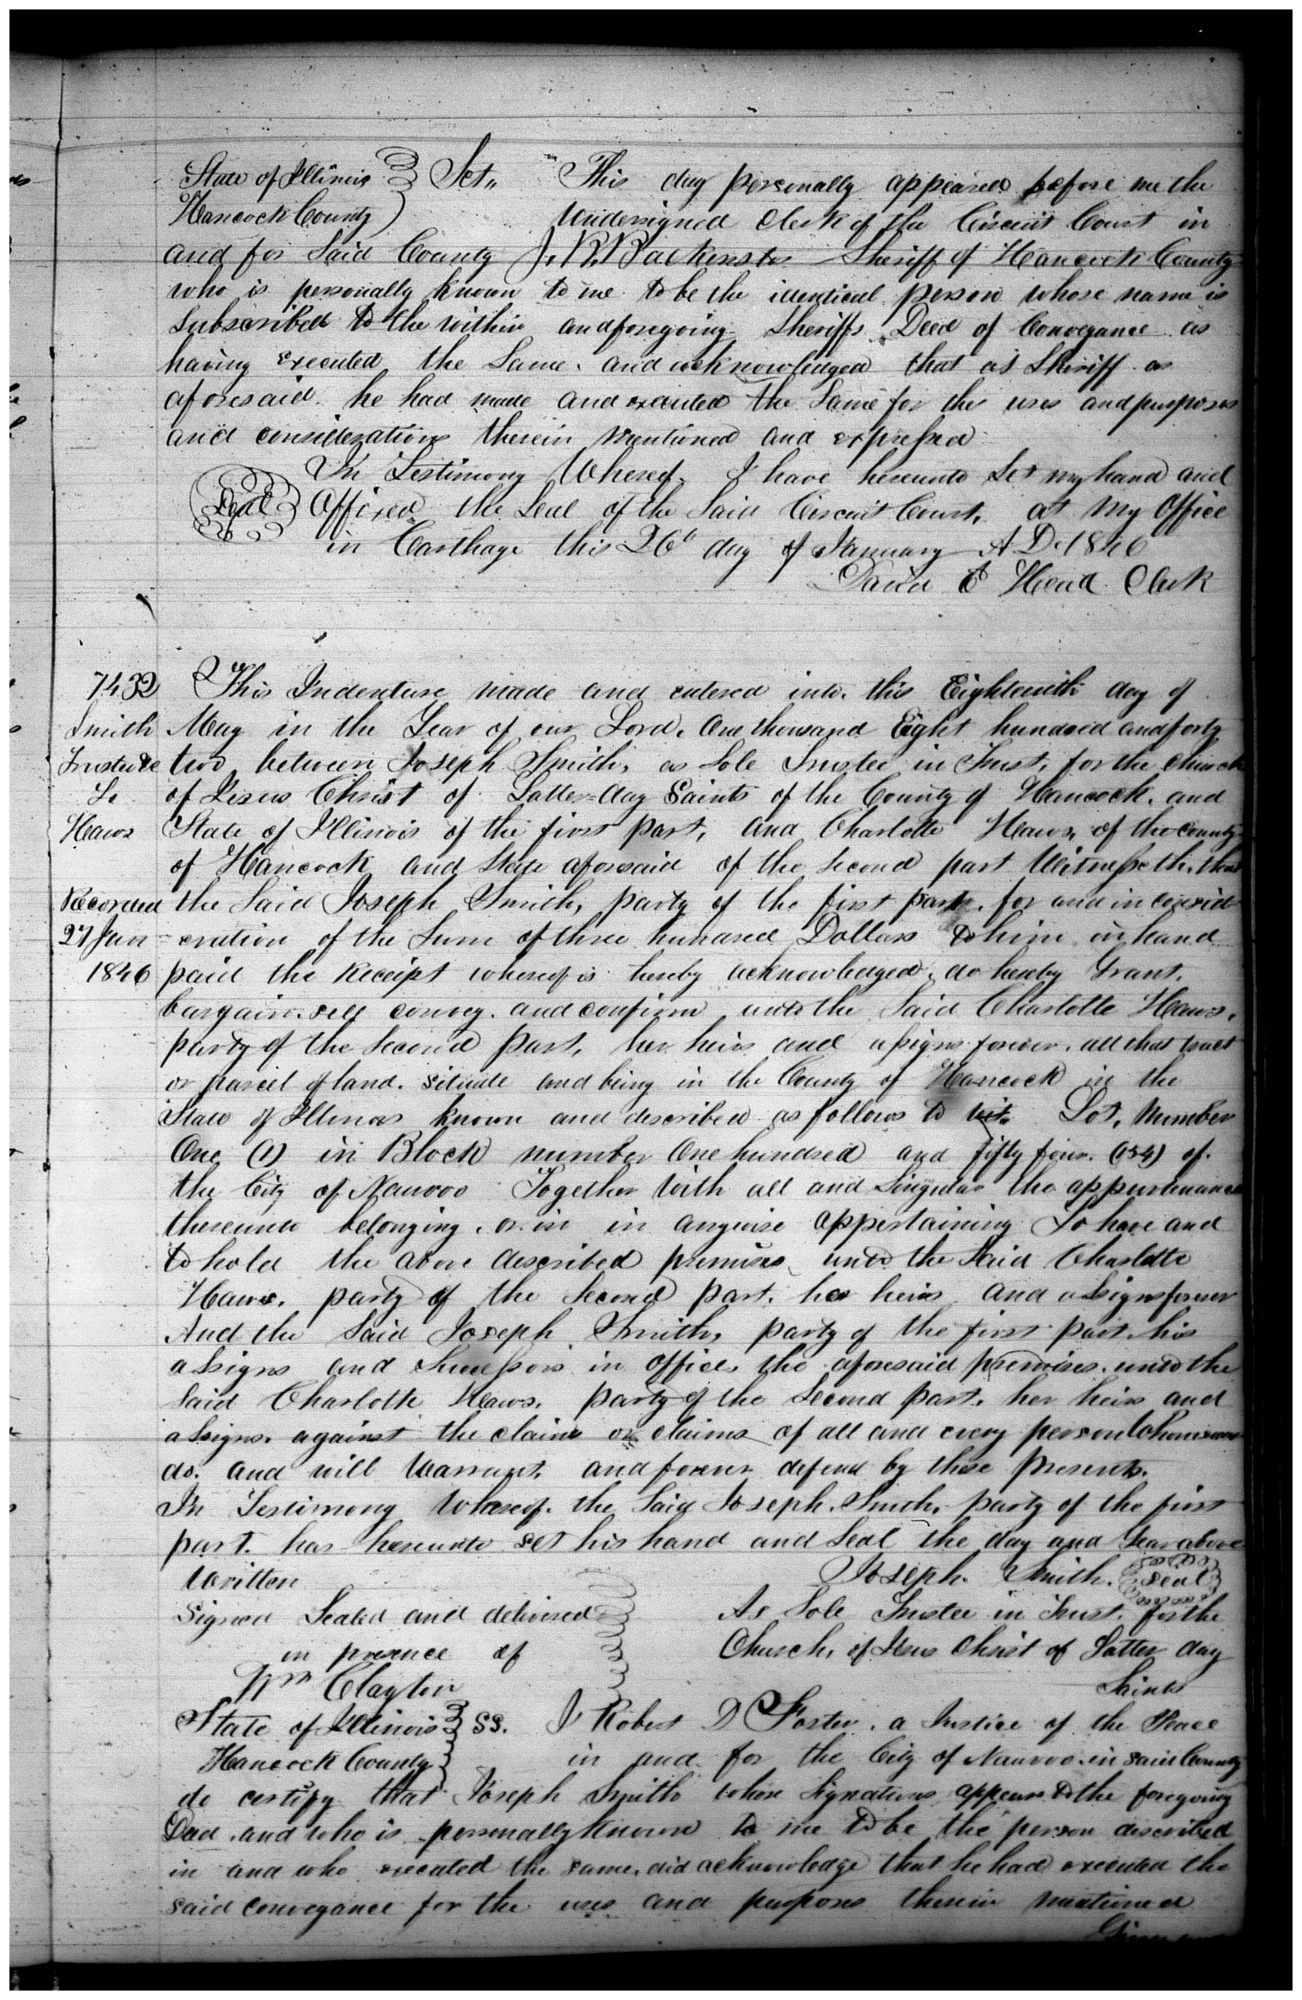 State of Illinois } Sct,, This day personally appeared before me the
Hancock County ) Undersigned Clerk of the Circuit Court in
and for Said County J. B. Backenstos Sheriff of Hancock County
who is personally known to me to be the identical person whose name is
Subscribed to the within and foregoing Sheriffs Deed of Conveyance as
having executed the Same. and acknowledged that as Sheriff as
aforesaid he had made and executed the Same for the uses and purposes
and considerations therein Mentioned and expressed
In Testimony Whereof, I have hereunto Set my hand and
Seal Affixed the Seal of the Said Circuit Court, at My Office
in Carthage this 26th day of January A D. 1846
David E Head Clerk
7432 This Indenture made and entered into this Eighteenth day of
Smith May in the Year of our Lord, One thousand Eight hundred and forty
Trustee two between Joseph Smith, as Sole Trustee in Trust, for the Church
To of Jesus Christ of Latter-day Saints of the County of Hancock, and
Haws State of Illinois of the first part, and Charlotte Haws, of the County
of Hancock and State aforesaid of the Second part Witnesseth, that
Recorded the Said Joseph Smith, party of the first part, for and in consid
27 Jan -eration of the Sum of three hundred Dollars to him in hand
1846 paid the Receipt whereof is hereby acknowledged, do hereby Grant,
bargain. sell convey. and confirm unto the Said Charlotte Haws,
party of the Second Part, her heirs and assigns forever. all that tract
or parcel of land. situate and being in the County of Hancock in the
State of Illinois known and described as follows to wit. Lot, Number
One (1) in Block number One hundred and fifty four. (154) of.
the City of Nauvoo Together With all and Singular the appurtenances
thereunto belonging. or in in anywise appertaining To have and
to hold the above described premises unto the Said Charlotte
Haws. party of the Second part. her heirs and assigns forever
And the Said Joseph Smith, party of the first part, his
assigns and Successors in office, the aforesaid premises. unto the
Said Charlotte Haws. party of the Second part. her heirs and
assigns. against the claim or claims of all and every person Whomsoever
do. and will Warrant, and forever defend by these Presents.
In Testimony Whereof. the Said Joseph Smith. party of the first
part. has hereunto set his hand and Seal the day and Year above
Written Joseph Smith. Seal
Signed Sealed and delivered As Sole Trustee in Trust. for the
in presence of Church, of Jesus Christ of Latter day
Wm Clayton Saints
State of Illinois } SS. I Robert D Foster, a Justice of the Peace
Hancock County } in and for the City of Nauvoo. in said County
do certify that Joseph Smith whose Signature appears to the foregoing
Deed. and who is personally known to me to be the person described
in and who executed the same, did acknowledge that he had executed the
said conveyance for the uses and purposes therein mentioned
Given